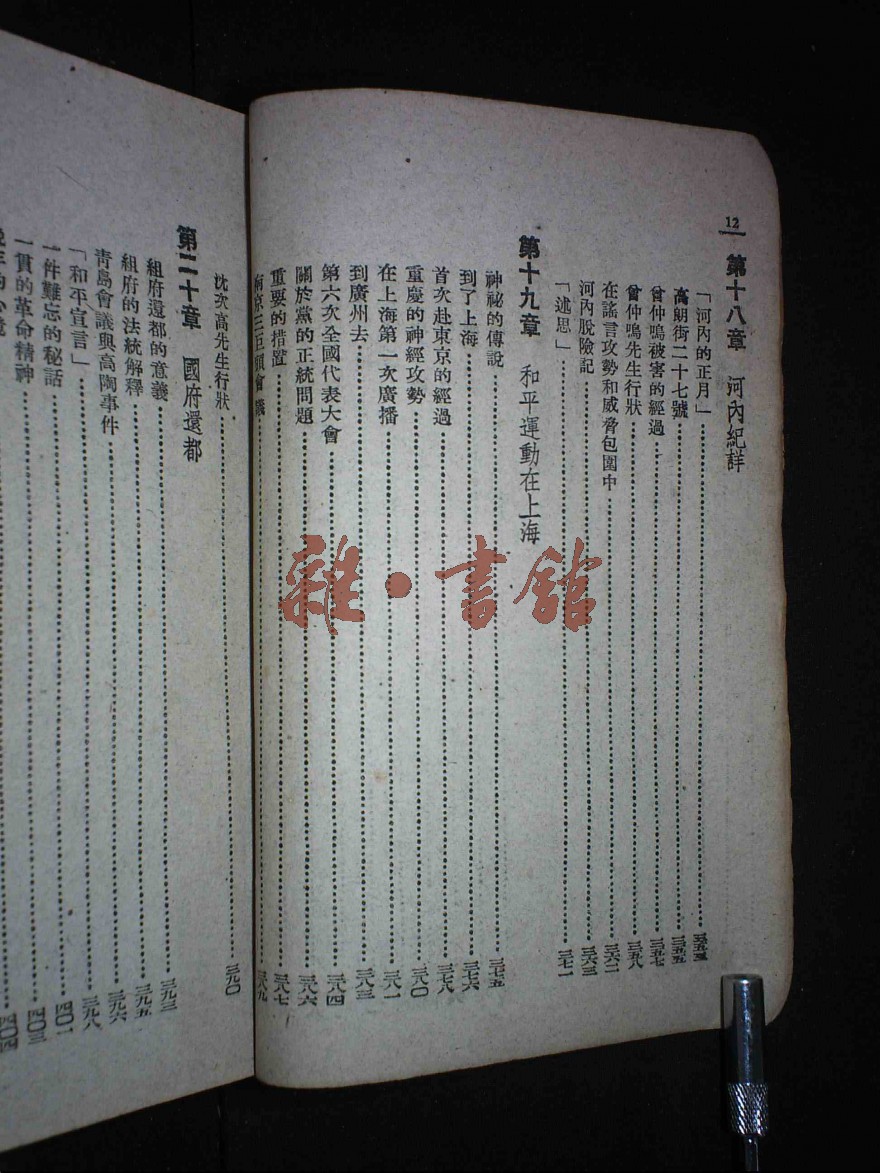 12
第十八章　河內紀詳
「河內的正月」……三五三
高朗街二十七號……三五五
曾仲鳴被害的經過……三五七
曾仲鳴先生行狀……三五八
在謠言攻勢和威脅包圍中……三六二
河內脫險記……三六三
「述思」……三七一
第十九章　和平運動在上海
神祕的傳說……三七五
到了上海……三七六
首次赴東京的經過……三七八
重慶的神經攻勢……三八〇
在上海第一次廣播……三八一
到廣州去……三八三
第六次全國代表大會……三八四
關於黨的正統問題……三八六
重要的措置……三八七
南京三巨頭會議……三八九
沈次高先生行狀……三九〇
第二十章　國府還都
組府還都的意義……三九三
組府的法統解釋……三九五
青島會議與高陶事件……三九六
「和平宣言」……三九八
一件難忘的秘話……四〇一
一貫的革命精神……四〇三
四〇四
雜·書館